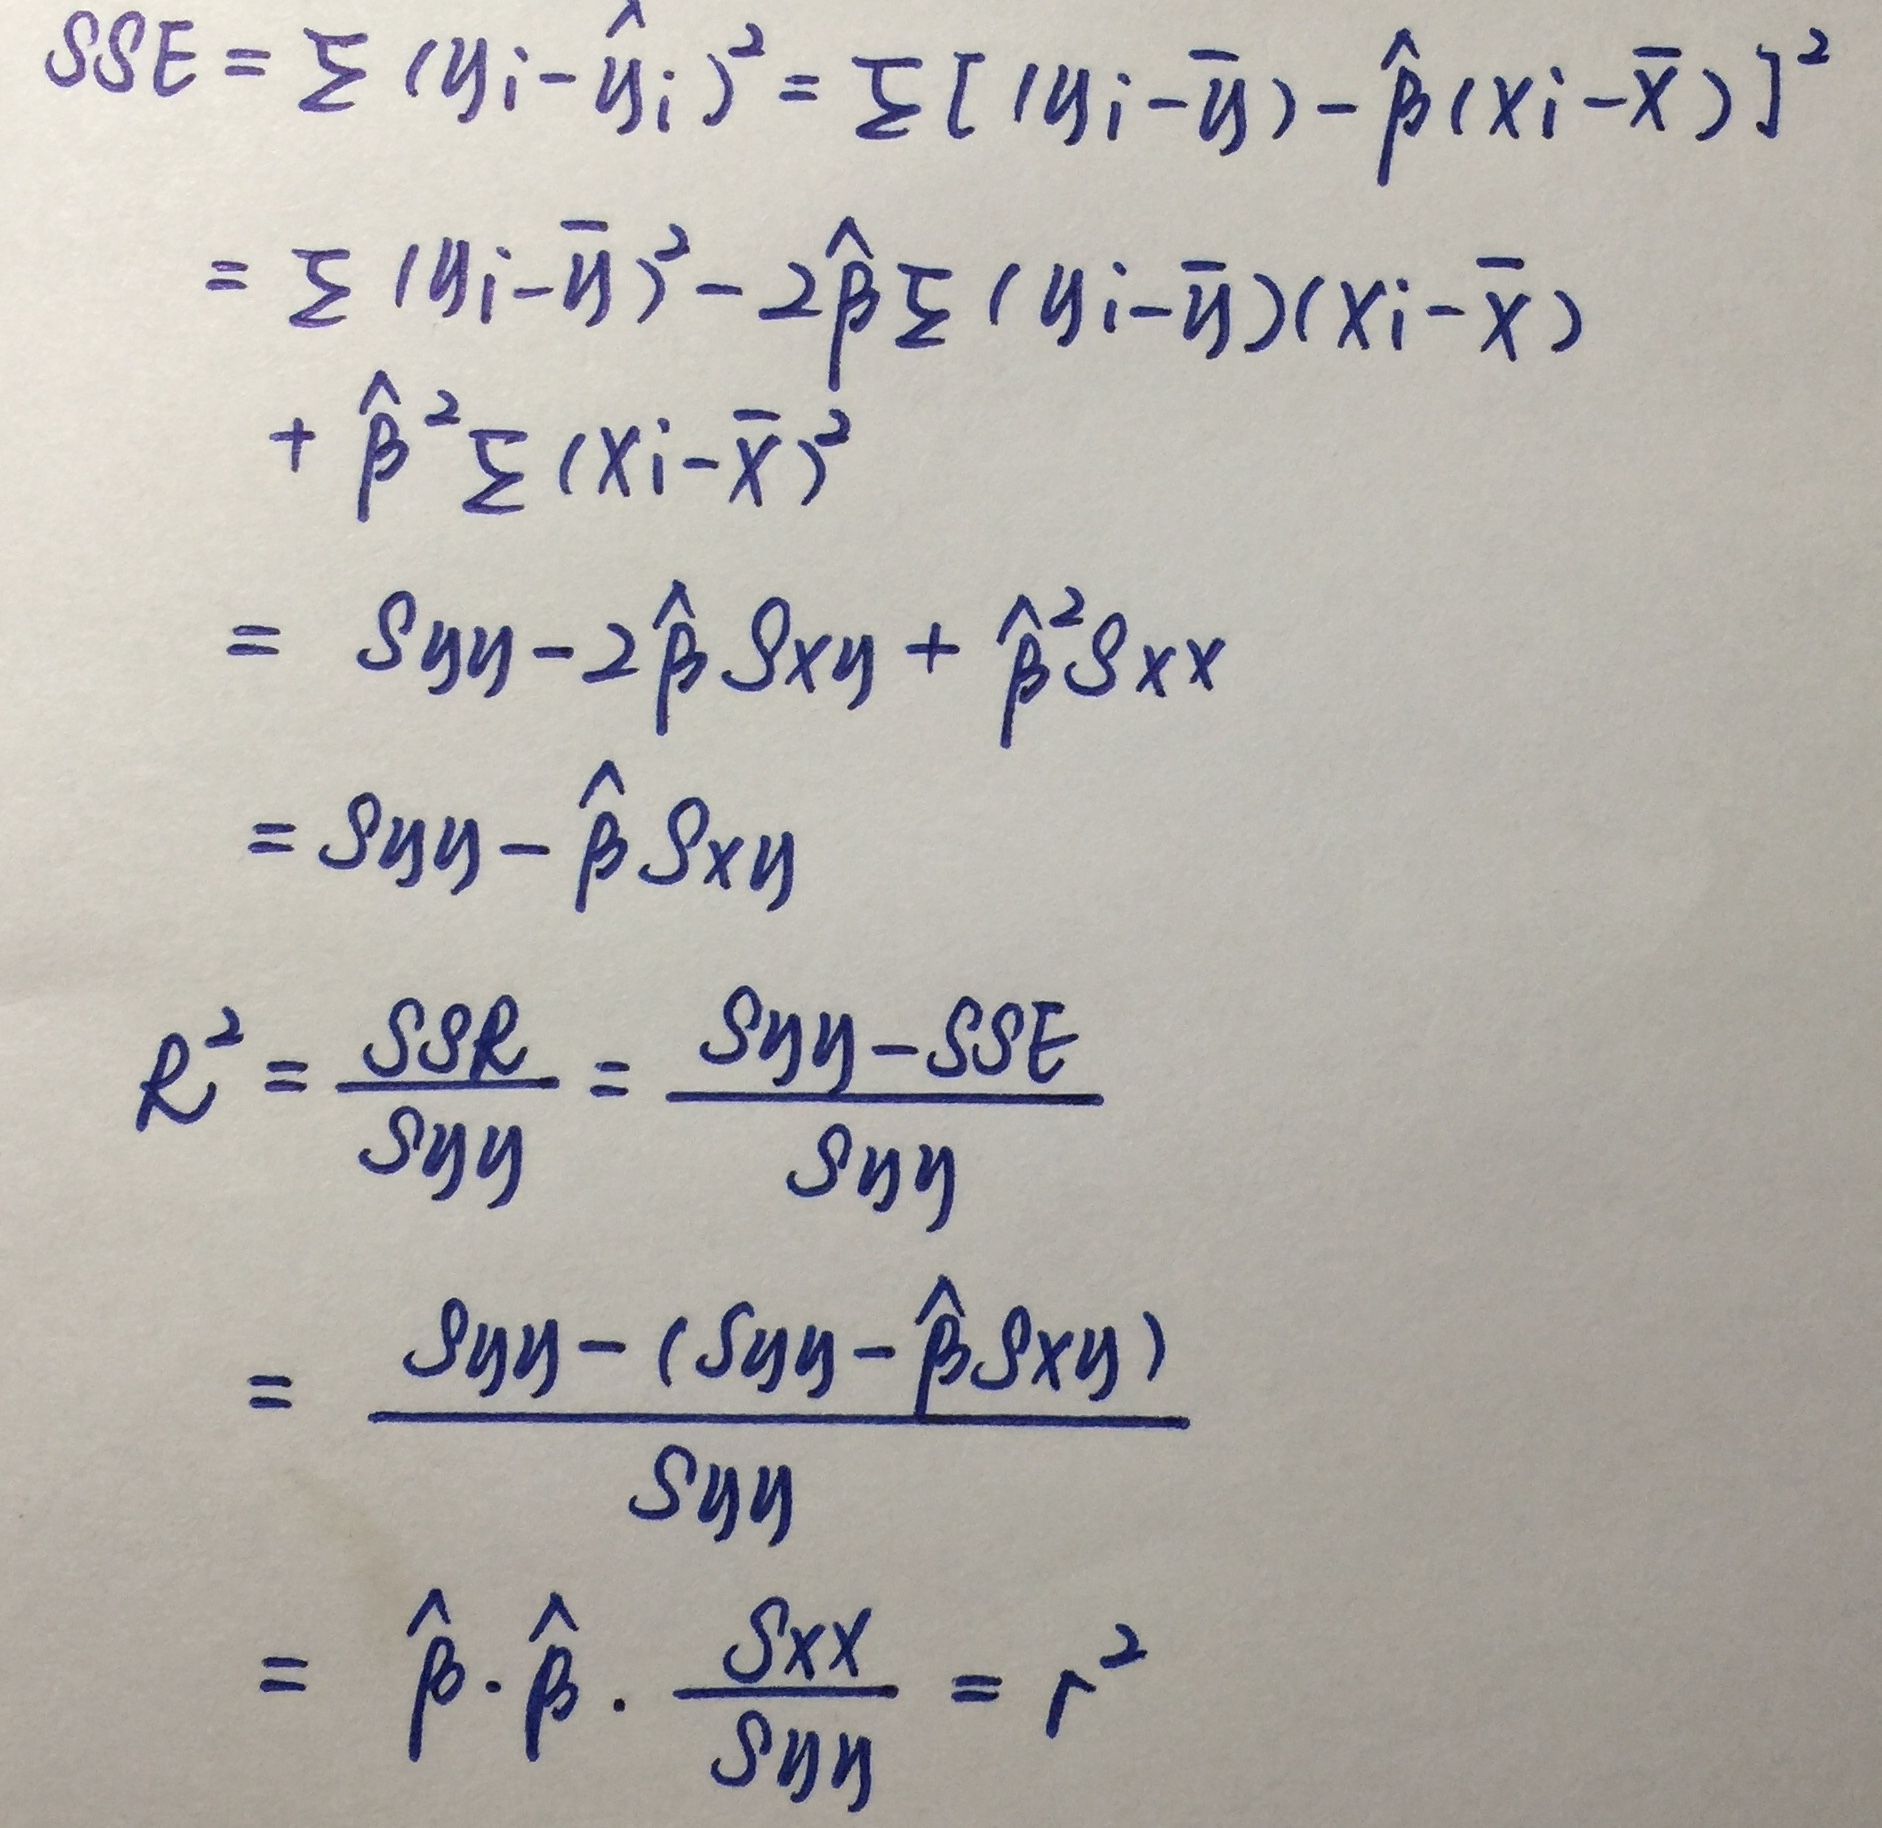 SSE = Σ (yi - ŷi)² = Σ [ (yi - ȳ) - β̂ (xi - x̄) ]²
= Σ (yi - ȳ)² - 2β̂ Σ (yi - ȳ)(xi - x̄)
+ β̂² Σ (xi - x̄)²
= Syy - 2β̂ Sxy + β̂² Sxx
= Syy - β̂ Sxy
R² = SSR / Syy = (Syy - SSE) / Syy
= (Syy - (Syy - β̂ Sxy)) / Syy
= β̂ · β̂ · Sxx / Syy = r²